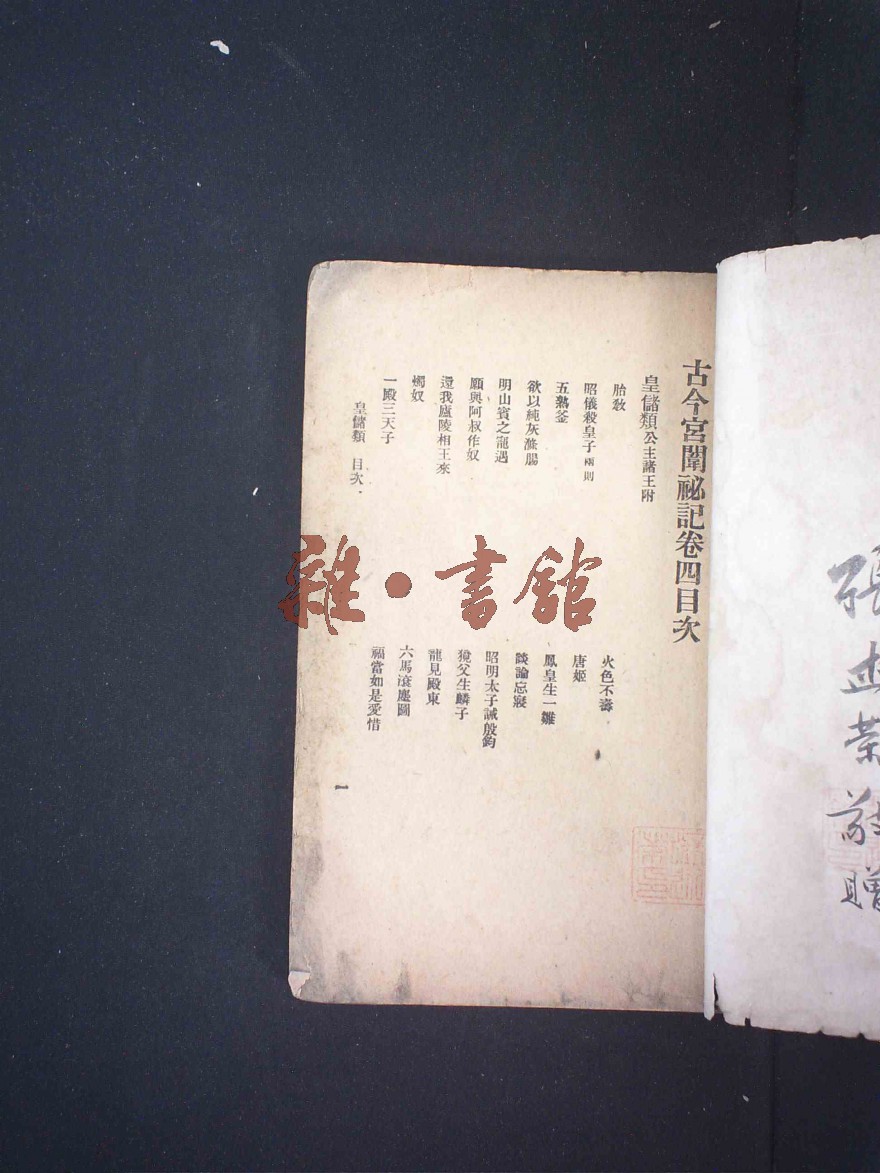 古今宮闈祕記卷四目次
皇儲類公主諸王附
胎敎
火色不壽
昭儀殺皇子兩則
唐姬
五熟釜
鳳皇生一雛
欲以純灰滌腸
談論忘寢
明山賓之寵遇
昭明太子誡殷鈞
願與阿叔作奴
獍父生麟子
還我廬陵相王來
龍見殿東
燭奴
六馬滾塵圖
一殿三天子
福當如是愛惜
皇儲類 目次
一
雜·書館
敬贈